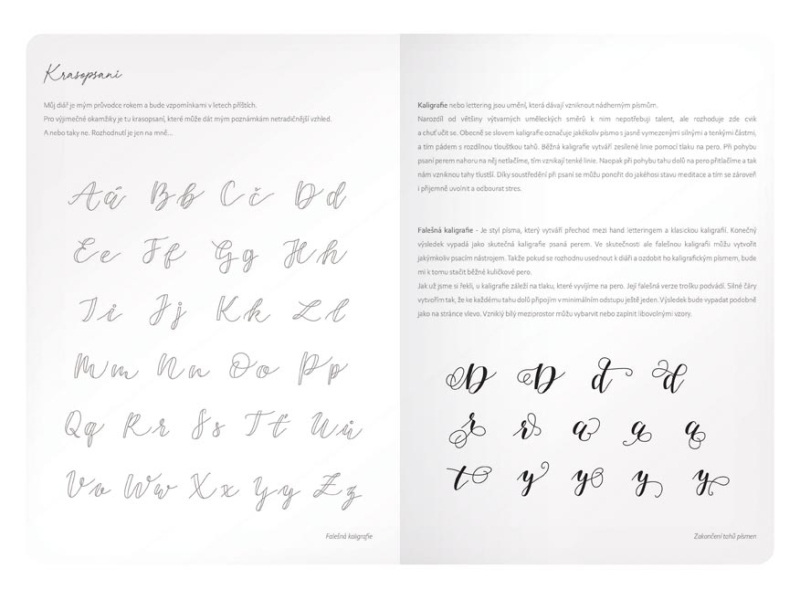 Krasopsaní
Můj diář je mým průvodce rokem a bude vzpomínkami v letech příštích.
Pro výjimečné okamžiky je tu krasopsaní, které může dát mým poznámkám netradičnější vzhled.
A nebo taky ne. Rozhodnutí je jen na mně...
Aá Bb Cč Dd
Ee Ff Gg Hh
Ii Jj Kk Ll
Mm Nn Oo Pp
Qq Rr Ss Tť Uů
Vv Ww Xx Yy Zz
Falešná kaligrafie
Kaligrafie nebo lettering jsou umění, která dávají vzniknout nádherným písmům.
Narozdíl od většiny výtvarných uměleckých směrů k nim nepotřebuji talent, ale rozhoduje zde cvik
a chuť učit se. Obecně se slovem kaligrafie označuje jakékoliv písmo s jasně vymezenými silnými a tenkými částmi,
a tím pádem s rozdílnou tloušťkou tahů. Běžná kaligrafie vytváří zesílené linie pomocí tlaku na pero. Při pohybu
psaní perem nahoru na něj netlačíme, tím vznikají tenké linie. Naopak při pohybu tahu dolů na pero přitlačíme a tak
nám vzniknou tahy tlustší. Díky soustředění při psaní se můžu ponořit do jakéhosi stavu meditace a tím se zároveň
i příjemně uvolnit a odbourat stres.
Falešná kaligrafie - Je styl písma, který vytváří přechod mezi hand letteringem a klasickou kaligrafií. Konečný
výsledek vypadá jako skutečná kaligrafie psaná perem. Ve skutečnosti ale falešnou kaligrafii můžu vytvořit
jakýmkoliv psacím nástrojem. Takže pokud se rozhodnu usednout k diáři a ozdobit ho kaligrafickým písmem, bude
mi k tomu stačit běžné kuličkové pero.
Jak už jsme si řekli, u kaligrafie záleží na tlaku, které vyvíjíme na pero. Její falešná verze trošku podvádí. Silné čáry
vytvořím tak, že ke každému tahu dolů připojím v minimálním odstupu ještě jeden. Výsledek bude vypadat podobně
jako na stránce vlevo. Vzniklý bílý meziprostor můžu vybarvit nebo zaplnit libovolnými vzory.
D D d d
r r a a a
t y y y y
Zakončení tahů písmen